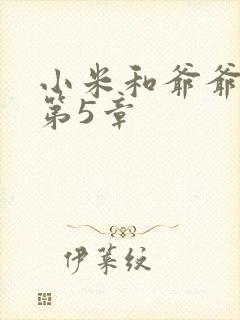 小米和爷爷
第5章
伊莱纹